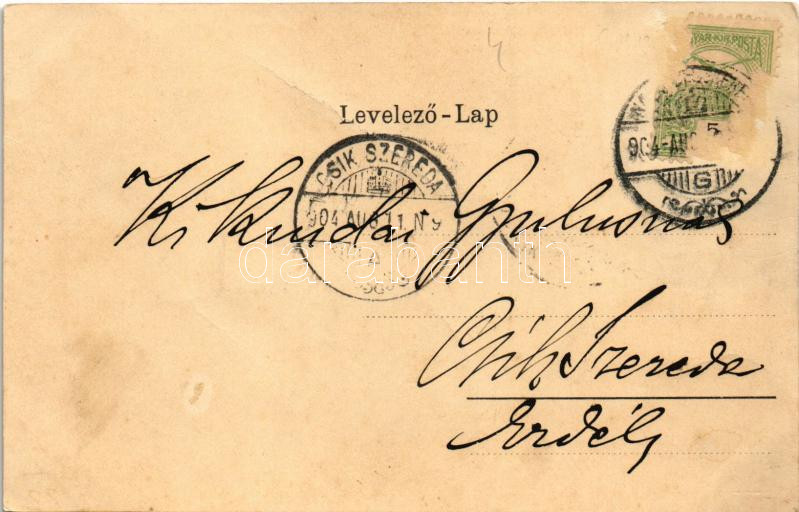 4
MAGYAR KIR. POSTA
Levelező-Lap
CSIK SZEREDA
904 AUG 11 N 9
904 AUG 5
G
Kikindai Gyulusnak
Csik Szereda
Erdély
darabanth